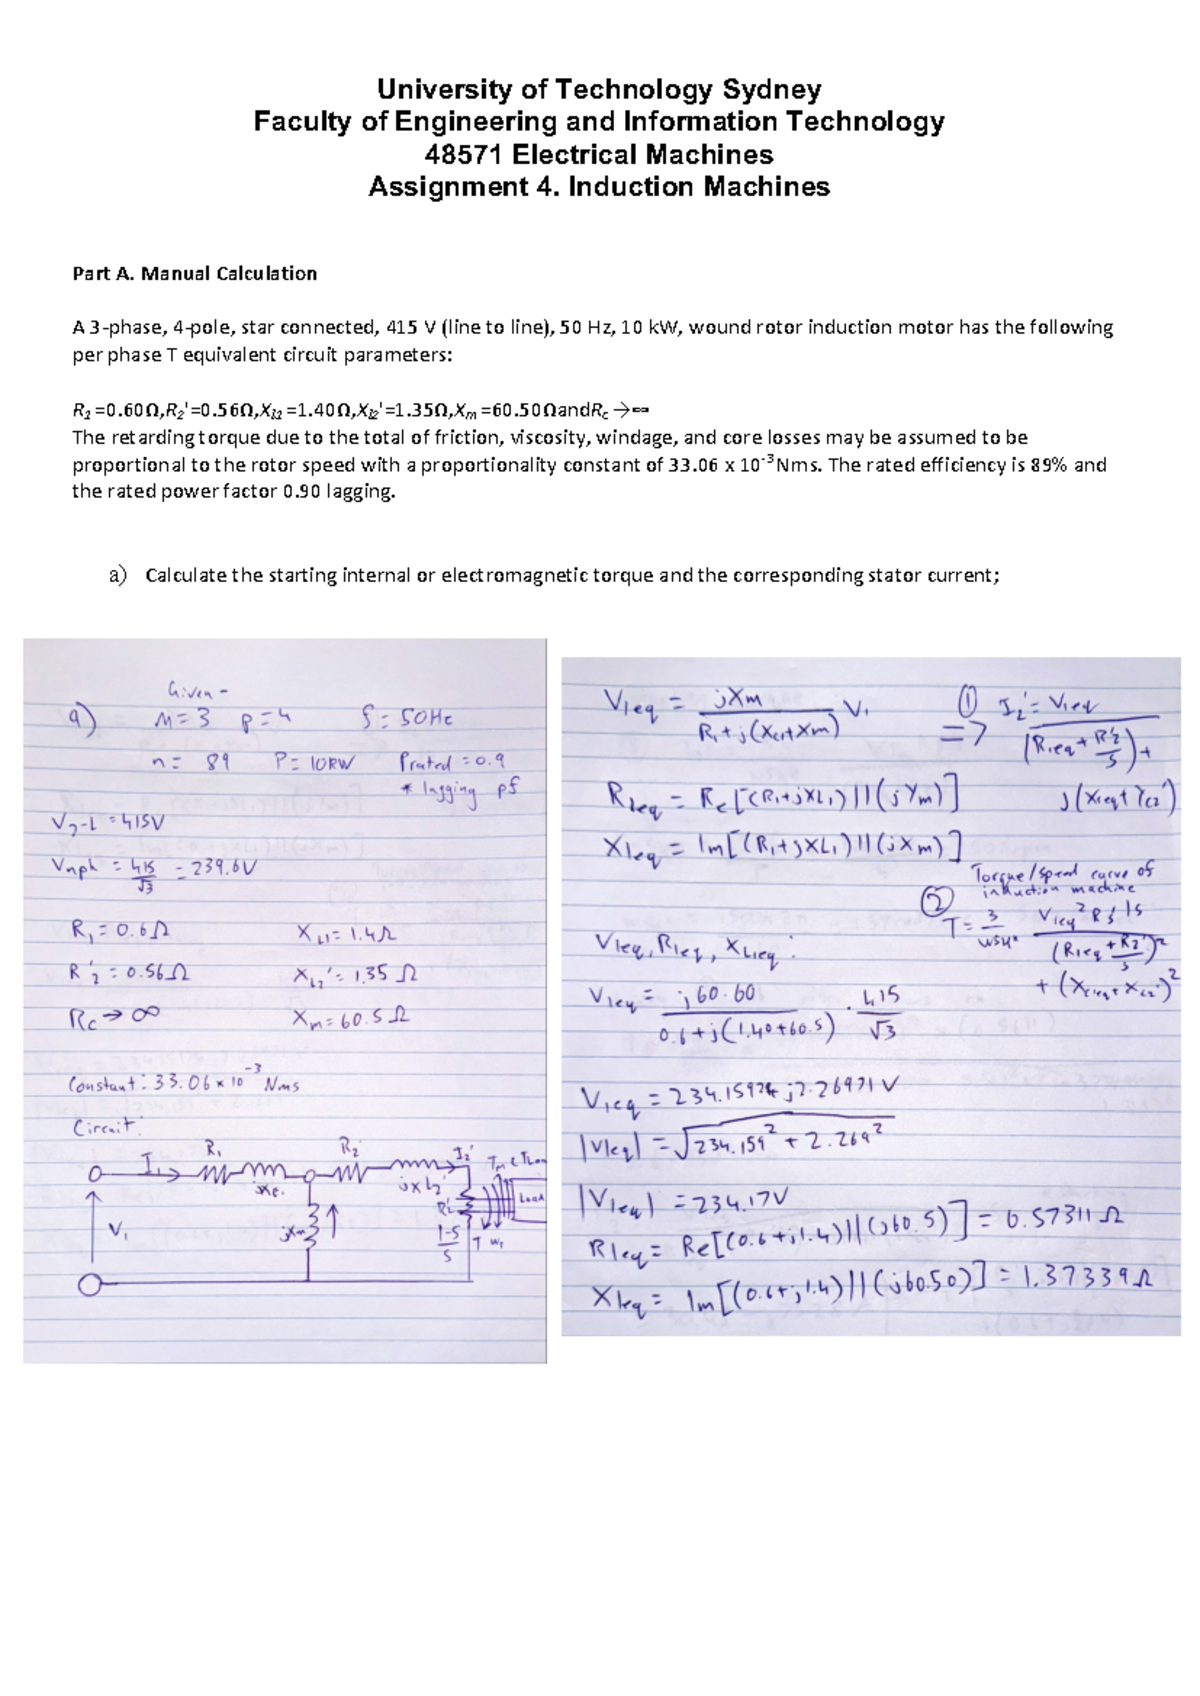 University of Technology Sydney
Faculty of Engineering and Information Technology
48571 Electrical Machines
Assignment 4. Induction Machines
Part A. Manual Calculation
A 3-phase, 4-pole, star connected, 415 V (line to line), 50 Hz, 10 kW, wound rotor induction motor has the following
per phase T equivalent circuit parameters:
R₁ =0.60Ω,R₂'=0.56Ω,Xₗ₁ =1.40Ω,Xₗ₂'=1.35Ω,Xₘ =60.50ΩandR꜀ →∞
The retarding torque due to the total of friction, viscosity, windage, and core losses may be assumed to be
proportional to the rotor speed with a proportionality constant of 33.06 x 10⁻³Nms. The rated efficiency is 89% and
the rated power factor 0.90 lagging.
a) Calculate the starting internal or electromagnetic torque and the corresponding stator current;
Given -
a) M=3 p=4 f=50Hz
n= 89 P=10KW Prated=0.9
* lagging pf
=415V
Vnph = 415/√3 = 239.6V
R₁=0.6Ω XL1=1.4Ω
R'₂=0.56Ω XL2'=1.35Ω
Rc→∞ Xm=60.5Ω
Constant: 33.06×10⁻³ Nms
Circuit:
R₁ R₂ I₂'
I₁
V₁ 1-S/S T
Load
V1eq = jXm / R₁+j(XL1+Xm) V₁ => ① I₂'= V1eq / (R1eq+R'2/S)+
j(X1eq+XL2')
R1eq = Re[(R₁+jXL₁)||(jXm)]
X1eq = Im[(R₁+jXL₁)||(jXm)]
② Torque/speed curve of
induction machine
T= 3/ωsyn V1eq²R'₂/S / (R1eq+R2'/S)²
+(XL1eq+XL2')²
V1eq, R1eq, XL1eq:
V1eq = j60.60 / 0.6+j(1.40+60.5) · 415/√3
V1eq = 234.159+j2.26971V
|V1eq| = √234.159²+2.269²
|V1eq| =234.17V
R1eq= Re[(0.6+j1.4)||(j60.5)] = 0.57311Ω
X1eq= Im[(0.6+j1.4)||(j60.50)] = 1.37339Ω